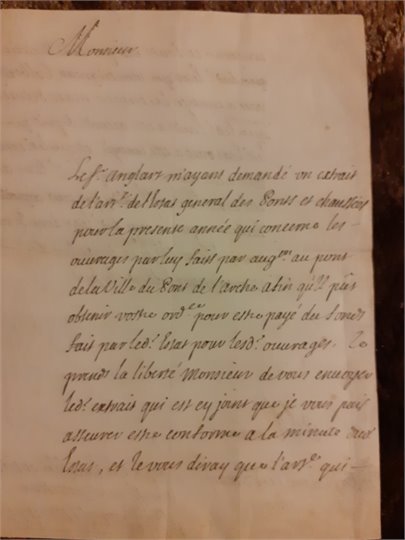 Monsieur
Le Sr. anglart m'ayant demandé un extrait
de l'arr.t de l'Estat general des Ponts et chaussées
pour la presente année qui concerne les
ouvrages par luy faits par augon au pont
de la Ville du Pont de l'arche afin qu'il puis
obtenir vostre ord.ce pour estre payé du fonds
fait par led.t Estat pour lesd.t ouvrages. Je
prends la liberté Monsieur de vous envoyer
led.t extrait qui est cy joint que je vous puis
asseurer estre conforme a la minute dud.
Estat, et Je vous diray que l'art.cle qui